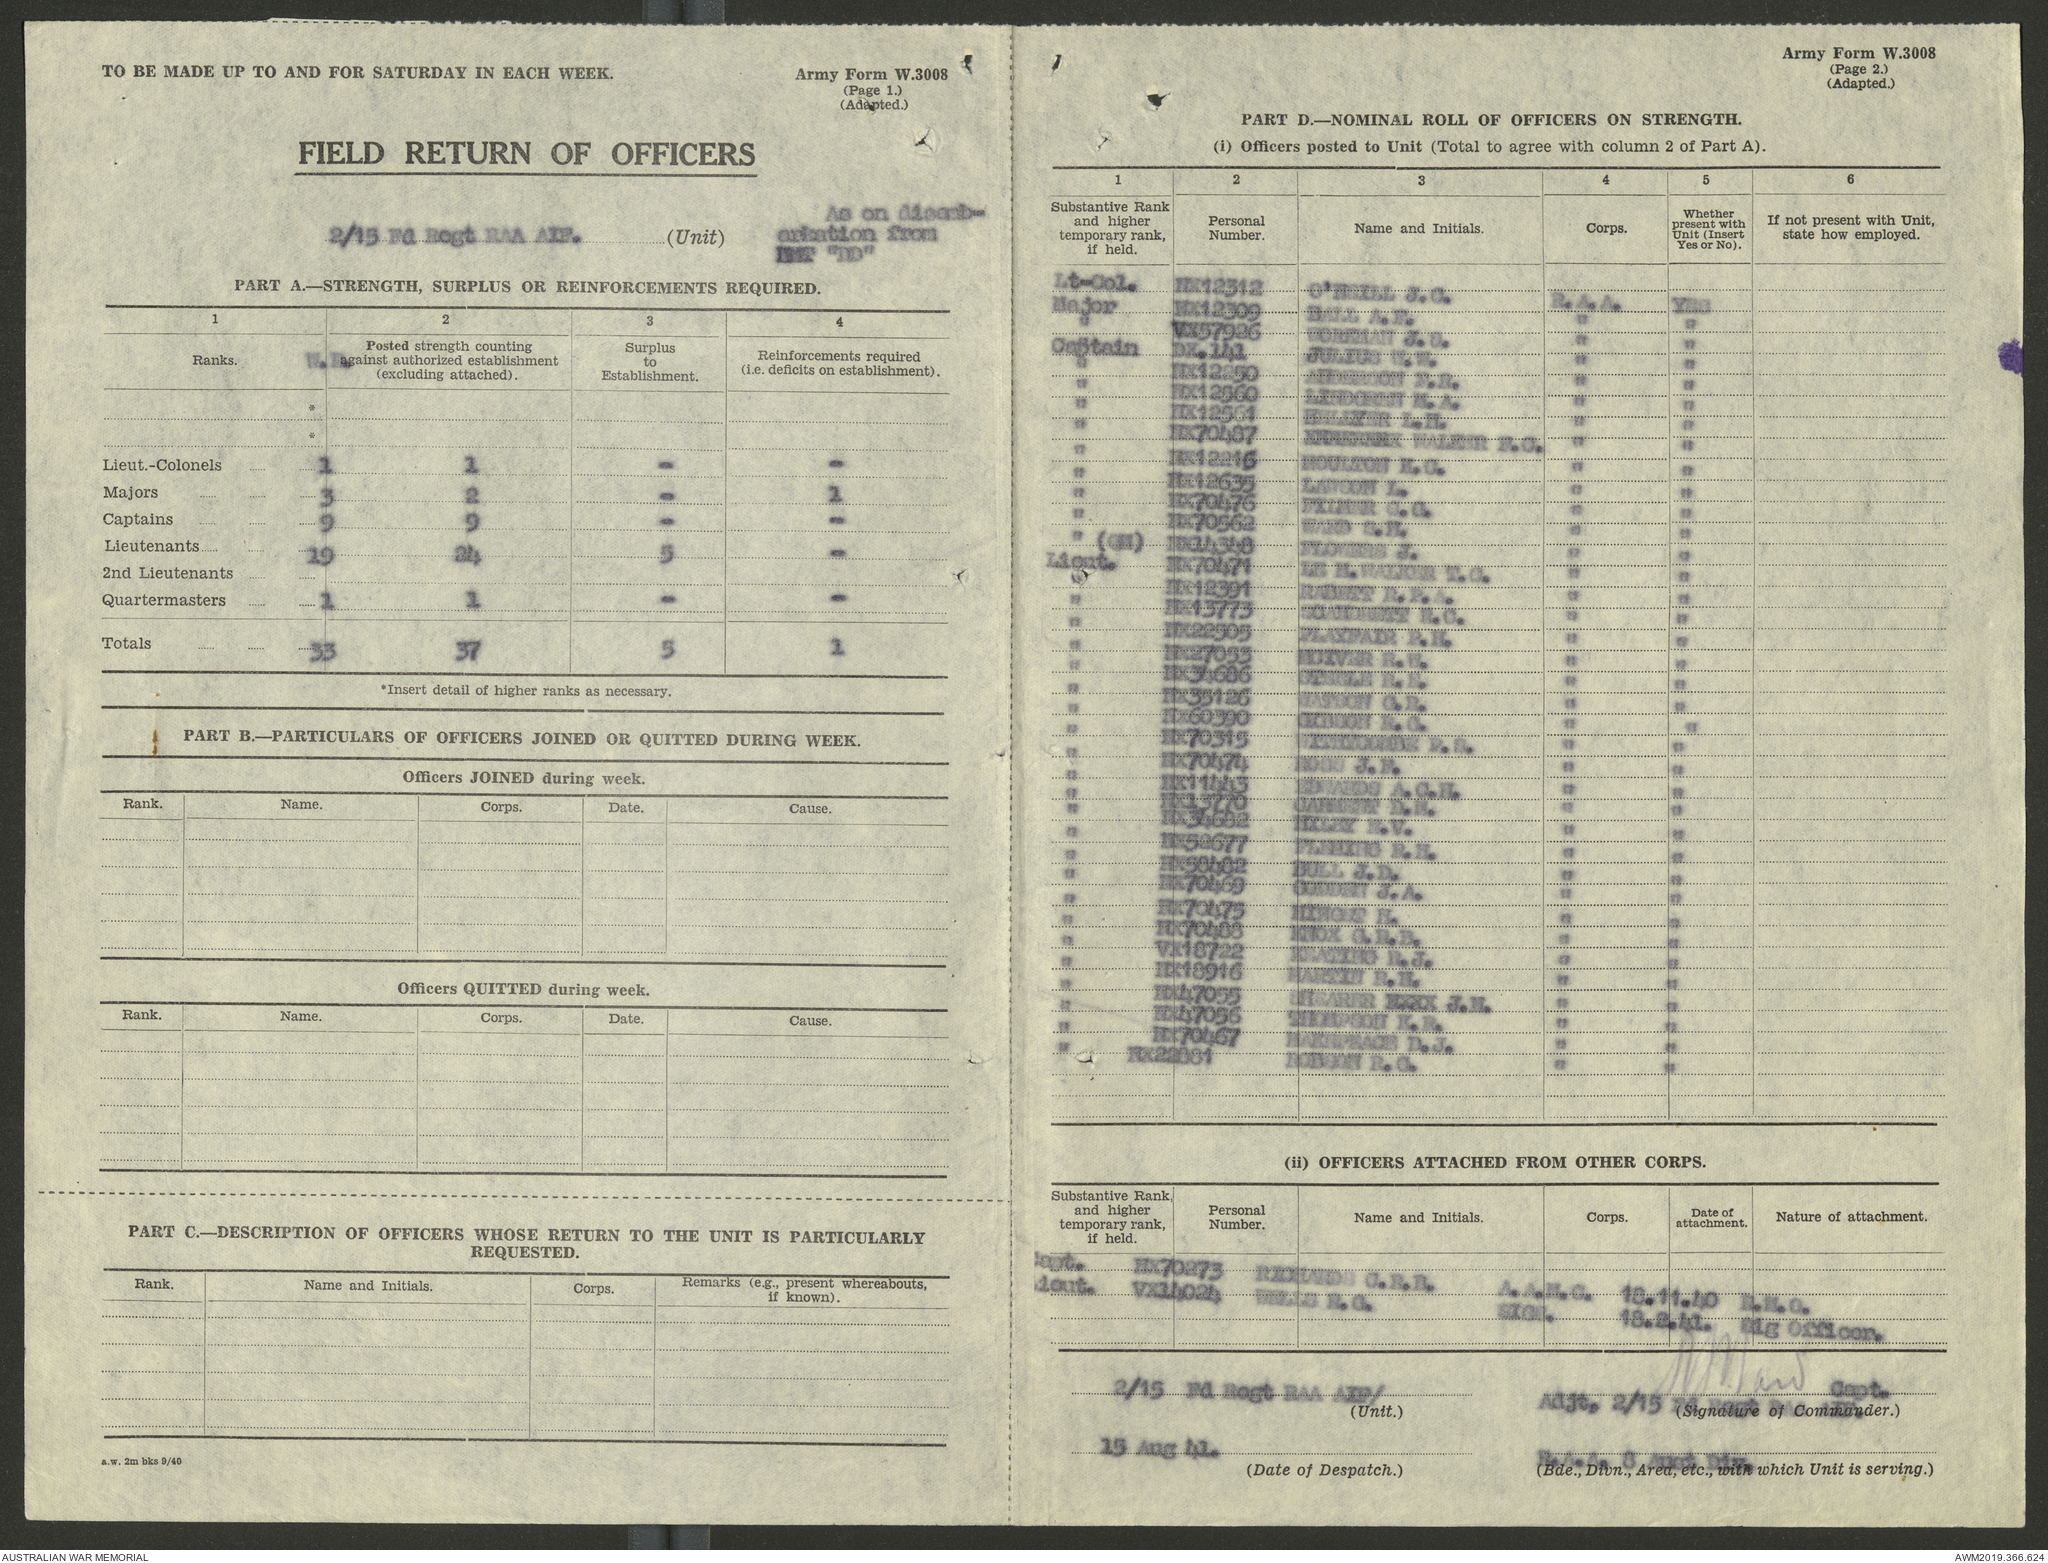 TO BE MADE UP TO AND FOR SATURDAY IN EACH WEEK.
Army Form W.3008
(Page 1.)
(Adapted.)
FIELD RETURN OF OFFICERS
2/15 Fd Regt RAA AIF. (Unit)
As on disemb-
arkation from
HMT "DD"
PART A.—STRENGTH, SURPLUS OR REINFORCEMENTS REQUIRED.
1 2 3 4
Ranks. W.E. Posted strength counting against authorized establishment (excluding attached). Surplus to Establishment. Reinforcements required (i.e. deficits on establishment).
*
*
Lieut.-Colonels 1 1 - -
Majors 3 2 - 1
Captains 9 9 - -
Lieutenants 19 24 5 -
2nd Lieutenants
Quartermasters 1 1 - -
Totals 33 37 5 1
*Insert detail of higher ranks as necessary.
PART B.—PARTICULARS OF OFFICERS JOINED OR QUITTED DURING WEEK.
Officers JOINED during week.
Rank. Name. Corps. Date. Cause.
Officers QUITTED during week.
Rank. Name. Corps. Date. Cause.
PART C.—DESCRIPTION OF OFFICERS WHOSE RETURN TO THE UNIT IS PARTICULARLY
REQUESTED.
Rank. Name and Initials. Corps. Remarks (e.g., present whereabouts, if known).
a.w. 2m bks 9/40
Army Form W.3008
(Page 2.)
(Adapted.)
PART D.—NOMINAL ROLL OF OFFICERS ON STRENGTH.
(i) Officers posted to Unit (Total to agree with column 2 of Part A).
1 2 3 4 5 6
Substantive Rank and higher temporary rank, if held. Personal Number. Name and Initials. Corps. Whether present with Unit (Insert Yes or No). If not present with Unit, state how employed.
Lt-Col. NX12312 O'NEILL J.C. R.A.A. YES
Major NX12309 BALL A.F. " "
" VX57926 WORKMAN J.S. " "
Captain DX.141 JULIUS W.W. " "
" NX12250 ANDERSON F.R. " "
" NX12560 LINDGREN M.A. " "
" NX12561 HELLYER L.H. " "
" NX70487 WALKER F.G. " "
" NX12216 MOULTON E.C. " "
" NX12635 LAWSON L. " "
" NX70476 FILMER C.G. " "
" NX70562 WARD S.H. " "
" (QM) NX14348 FLOWERS J. " "
Lieut. NX70471 LE M.WALKER T.G. " "
" NX12391 RABETT R.P.A. " "
" NX13773 SCANDRETT E.C. " "
" NX22505 PLAYFAIR P.H. " "
" NX27053 MCIVER R.W. " "
" NX34686 STEELE R.E. " "
" NX35126 WATSON G.R. " "
" NX60390 GIBSON R.C. " "
" NX70315 WITHYCOMBE P.S. " "
" NX70474 ROSS J.F. " "
" NX11443 EDWARDS A.C.H. " "
" NX13770 GARNETT D.H. " "
" NX34682 HILEY E.V. " "
" NX52677 FLEMING R.H. " "
" NX58482 BULL J.D. " "
" NX70469 COWDEN J.A. " "
" NX70475 H. " "
" NX70488 KNOX G.R.B. " "
" VX18722 KEATING R.J. " "
" NX18916 MARTIN R.H. " "
" NX47055 SHEARER J.H. " "
" NX47056 THOMPSON K.R. " "
" NX70467 MAKEPEACE D.J. " "
" NX22881 ROBSON R.C. " "
(ii) OFFICERS ATTACHED FROM OTHER CORPS.
Substantive Rank, and higher temporary rank, if held. Personal Number. Name and Initials. Corps. Date of attachment. Nature of attachment.
Capt. NX70273 RICHARDS C.R.B. A.A.M.C. 18.11.40 R.M.O.
Lieut. VX14024 WELLS R.G. SIGN. 18.2.41. Sig Officer.
2/15 Fd Regt RAA AIF/
(Unit.)
Capt.
Adjt. 2/15 Fd Regt RAA AIF.
(Signature of Commander.)
15 Aug 41.
(Date of Despatch.)
R.A.A. 8 Aust Div.
(Bde., Divn., Area, etc., with which Unit is serving.)
AUSTRALIAN WAR MEMORIAL
AWM2019.366.624